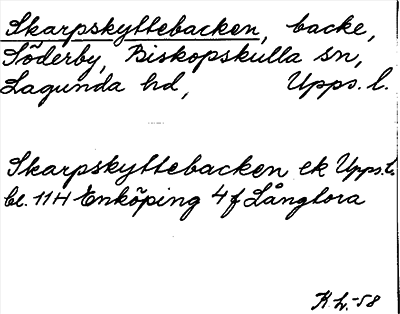 Skarpskyttebacken, backe,
Söderby, Biskopskulla sn,
Lagunda hd, Upps. l.
Skarpskyttebacken ek Upps. l.
bl. 11H Enköping 4f Långtora
K L. -58